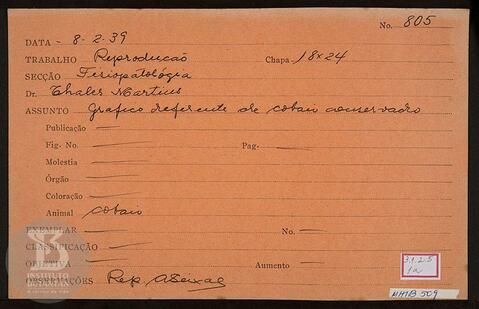 No. 805
DATA - 8-2-39
TRABALHO Reproducão Chapa 18x24
SECÇÃO Fisiopatológia
Dr. Thales Martins
ASSUNTO Grafico referente de cobaio conservado
Publicação
Fig. No. Pag.
Molestia
Órgão
Coloração
Animal cobaio
EXEMPLAR No.
CLASSIFICAÇÃO
OBJETIVA Aumento
OBSERVAÇÕES Rep. A Seixas
3.1.2.5
1a
MHIB 509
INSTITUTO